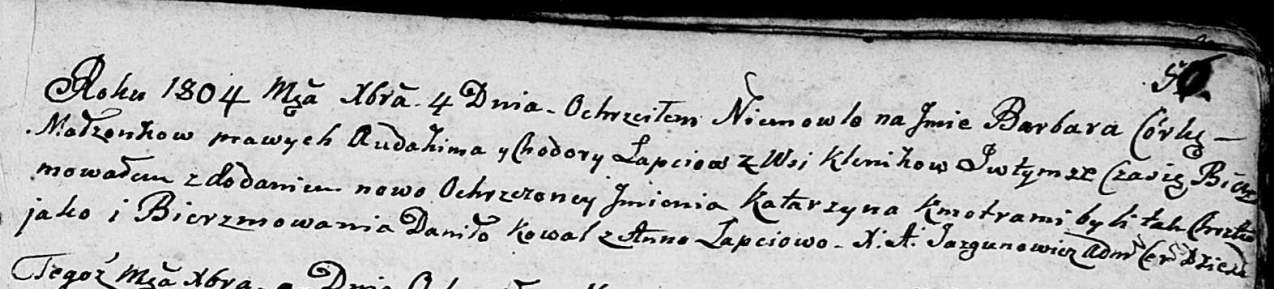 50.
Roku 1804 Mca Xbra 4 Dnia. Ochrzciłem Niemowlo na Jmie Barbara Córkę
Małżonkow prawych Audakima y Chodory Łapciow z Wsi Klenikow J w tymże Czasie Bierz
mowałem z dodaniem nowo Ochrzczoney Jmienia Katarzyna Kmotrami byli tak Chrztu
jako i Bierzmowania Daniło Kowal z Anno Łapciowo. X. A. Jazgunowicz Adm Cer
Tegoż Mca Xbra Dnia